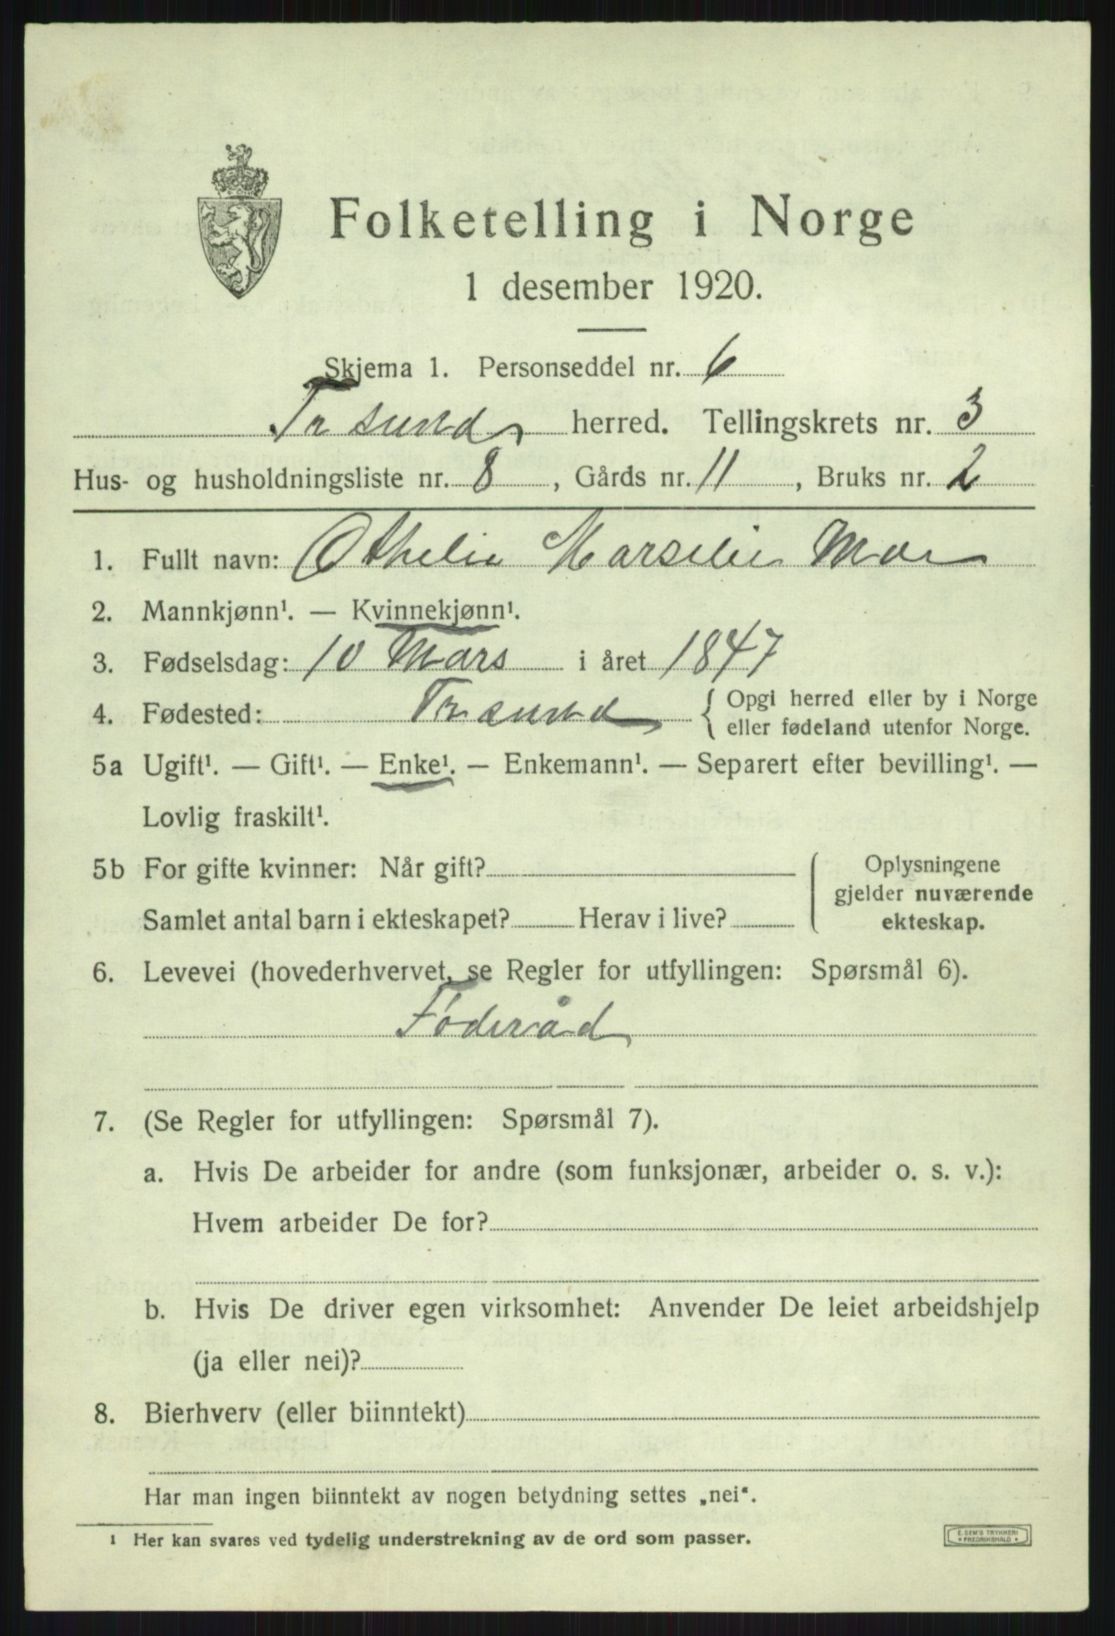 Folketelling i Norge
1 desember 1920.
Skjema 1. Personseddel nr. 6
Tresund herred. Tellingskrets nr. 3
Hus- og husholdningsliste nr. 8, Gårds nr. 11, Bruks nr. 2
1. Fullt navn: Othelie Marselie Moe
2. Mannkjønn¹. — Kvinnekjønn¹.
3. Fødselsdag: 10 Mars i året 1847
4. Fødested: Tresund { Opgi herred eller by i Norge
eller fødeland utenfor Norge.
5a Ugift¹. — Gift¹. — Enke¹. — Enkemann¹. — Separert efter bevilling¹. —
Lovlig fraskilt¹.
5b For gifte kvinner: Når gift?
Samlet antal barn i ekteskapet? Herav i live?
Oplysningene
gjelder nuværende
ekteskap.
6. Levevei (hovederhvervet, se Regler for utfyllingen: Spørsmål 6).
Føderåd
7. (Se Regler for utfyllingen: Spørsmål 7).
a. Hvis De arbeider for andre (som funksjonær, arbeider o. s. v.):
Hvem arbeider De for?
b. Hvis De driver egen virksomhet: Anvender De leiet arbeidshjelp
(ja eller nei)?
8. Bierhverv (eller biinntekt)
Har man ingen biinntekt av nogen betydning settes „nei“.
¹ Her kan svares ved tydelig understrekning av de ord som passer.
E. SEM'S TRYKKERI
• FREDRIKSHALD •